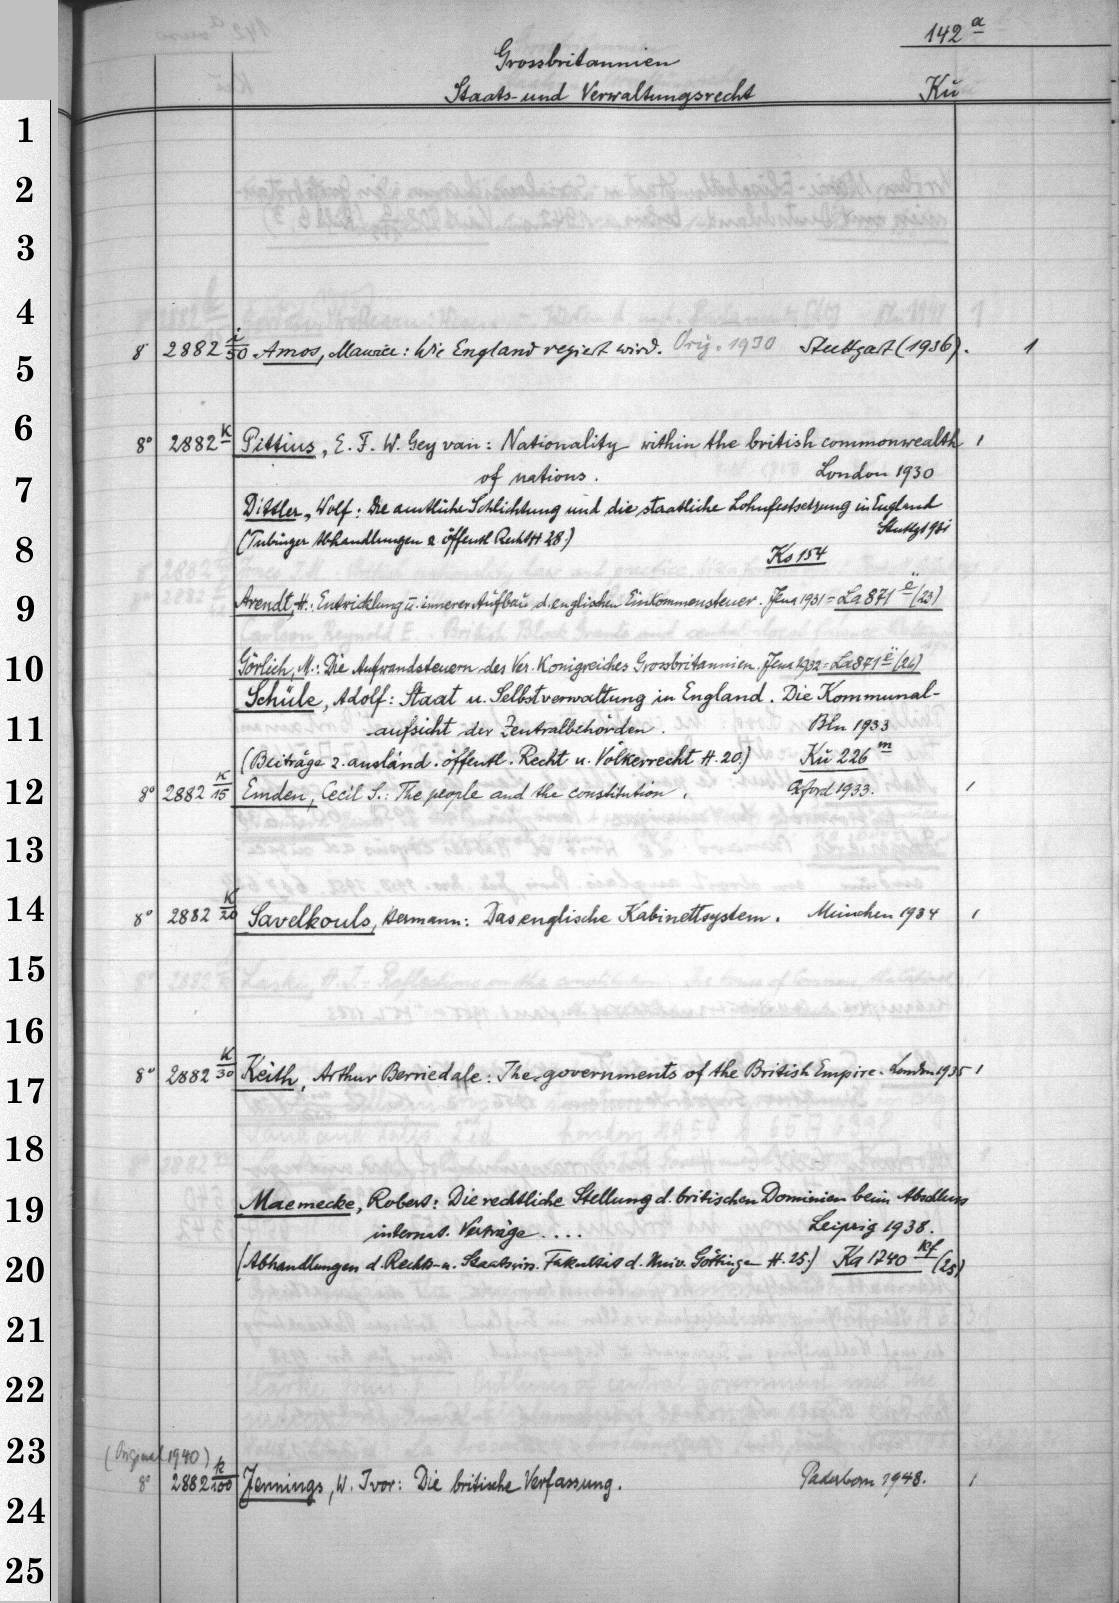 142 a
Grossbritannien
Staats- und Verwaltungsrecht Kü
1
2
3
4
8° 2882 i/50 Amos, Maurice: Wie England regiert wird. Orig. 1930 Stuttgart (1936). 1
5
6
8° 2882 K Pittius, E. F. W. Gey van: Nationality within the british commonwealth 1
of nations. London 1930
7
Dittler, Wolf: Die amtliche Schlichtung und die staatliche Lohnfestsetzung in England
Stuttg 1931
(Tübinger Abhandlungen z öffentl Recht H 28.)
8
Ks 154
Arendt, H.: Entwicklung u. innerer Aufbau d. englischen Einkommensteuer. Jena 1931 = La 871 e (23)
9
Görlich, M.: Die Aufwandsteuern des Ver. Königreiches Grossbritannien. Jena 1932 = La 871 e (26)
10
Schüle, Adolf: Staat u. Selbstverwaltung in England. Die Kommunal-
aufsicht der Zentralbehörden. Bln 1933
11
(Beiträge z. ausländ. öffentl. Recht u. Völkerrecht H. 20.) Kü 226 m
8° 2882 K/15 Emden, Cecil S.: The people and the constitution. Oxford 1933. 1
12
13
14
8° 2882 K/20 Savelkouls, Hermann: Das englische Kabinettsystem. München 1934 1
15
16
8° 2882 K/30 Keith, Arthur Berriedale: The governments of the British Empire. London 1935 1
17
18
Maemecke, Robert: Die rechtliche Stellung d. britischen Dominien beim Abschluss
19
internat. Verträge .... Leipzig 1938.
(Abhandlungen d. Rechts- u. Staatswiss. Fakultät d. Univ. Göttingen H. 25.) Ka 1740 kf (25)
20
21
22
23
(Original 1940)
8° 2882 k/100 Jennings, W. Ivor: Die britische Verfassung. Paderborn 1948. 1
24
25